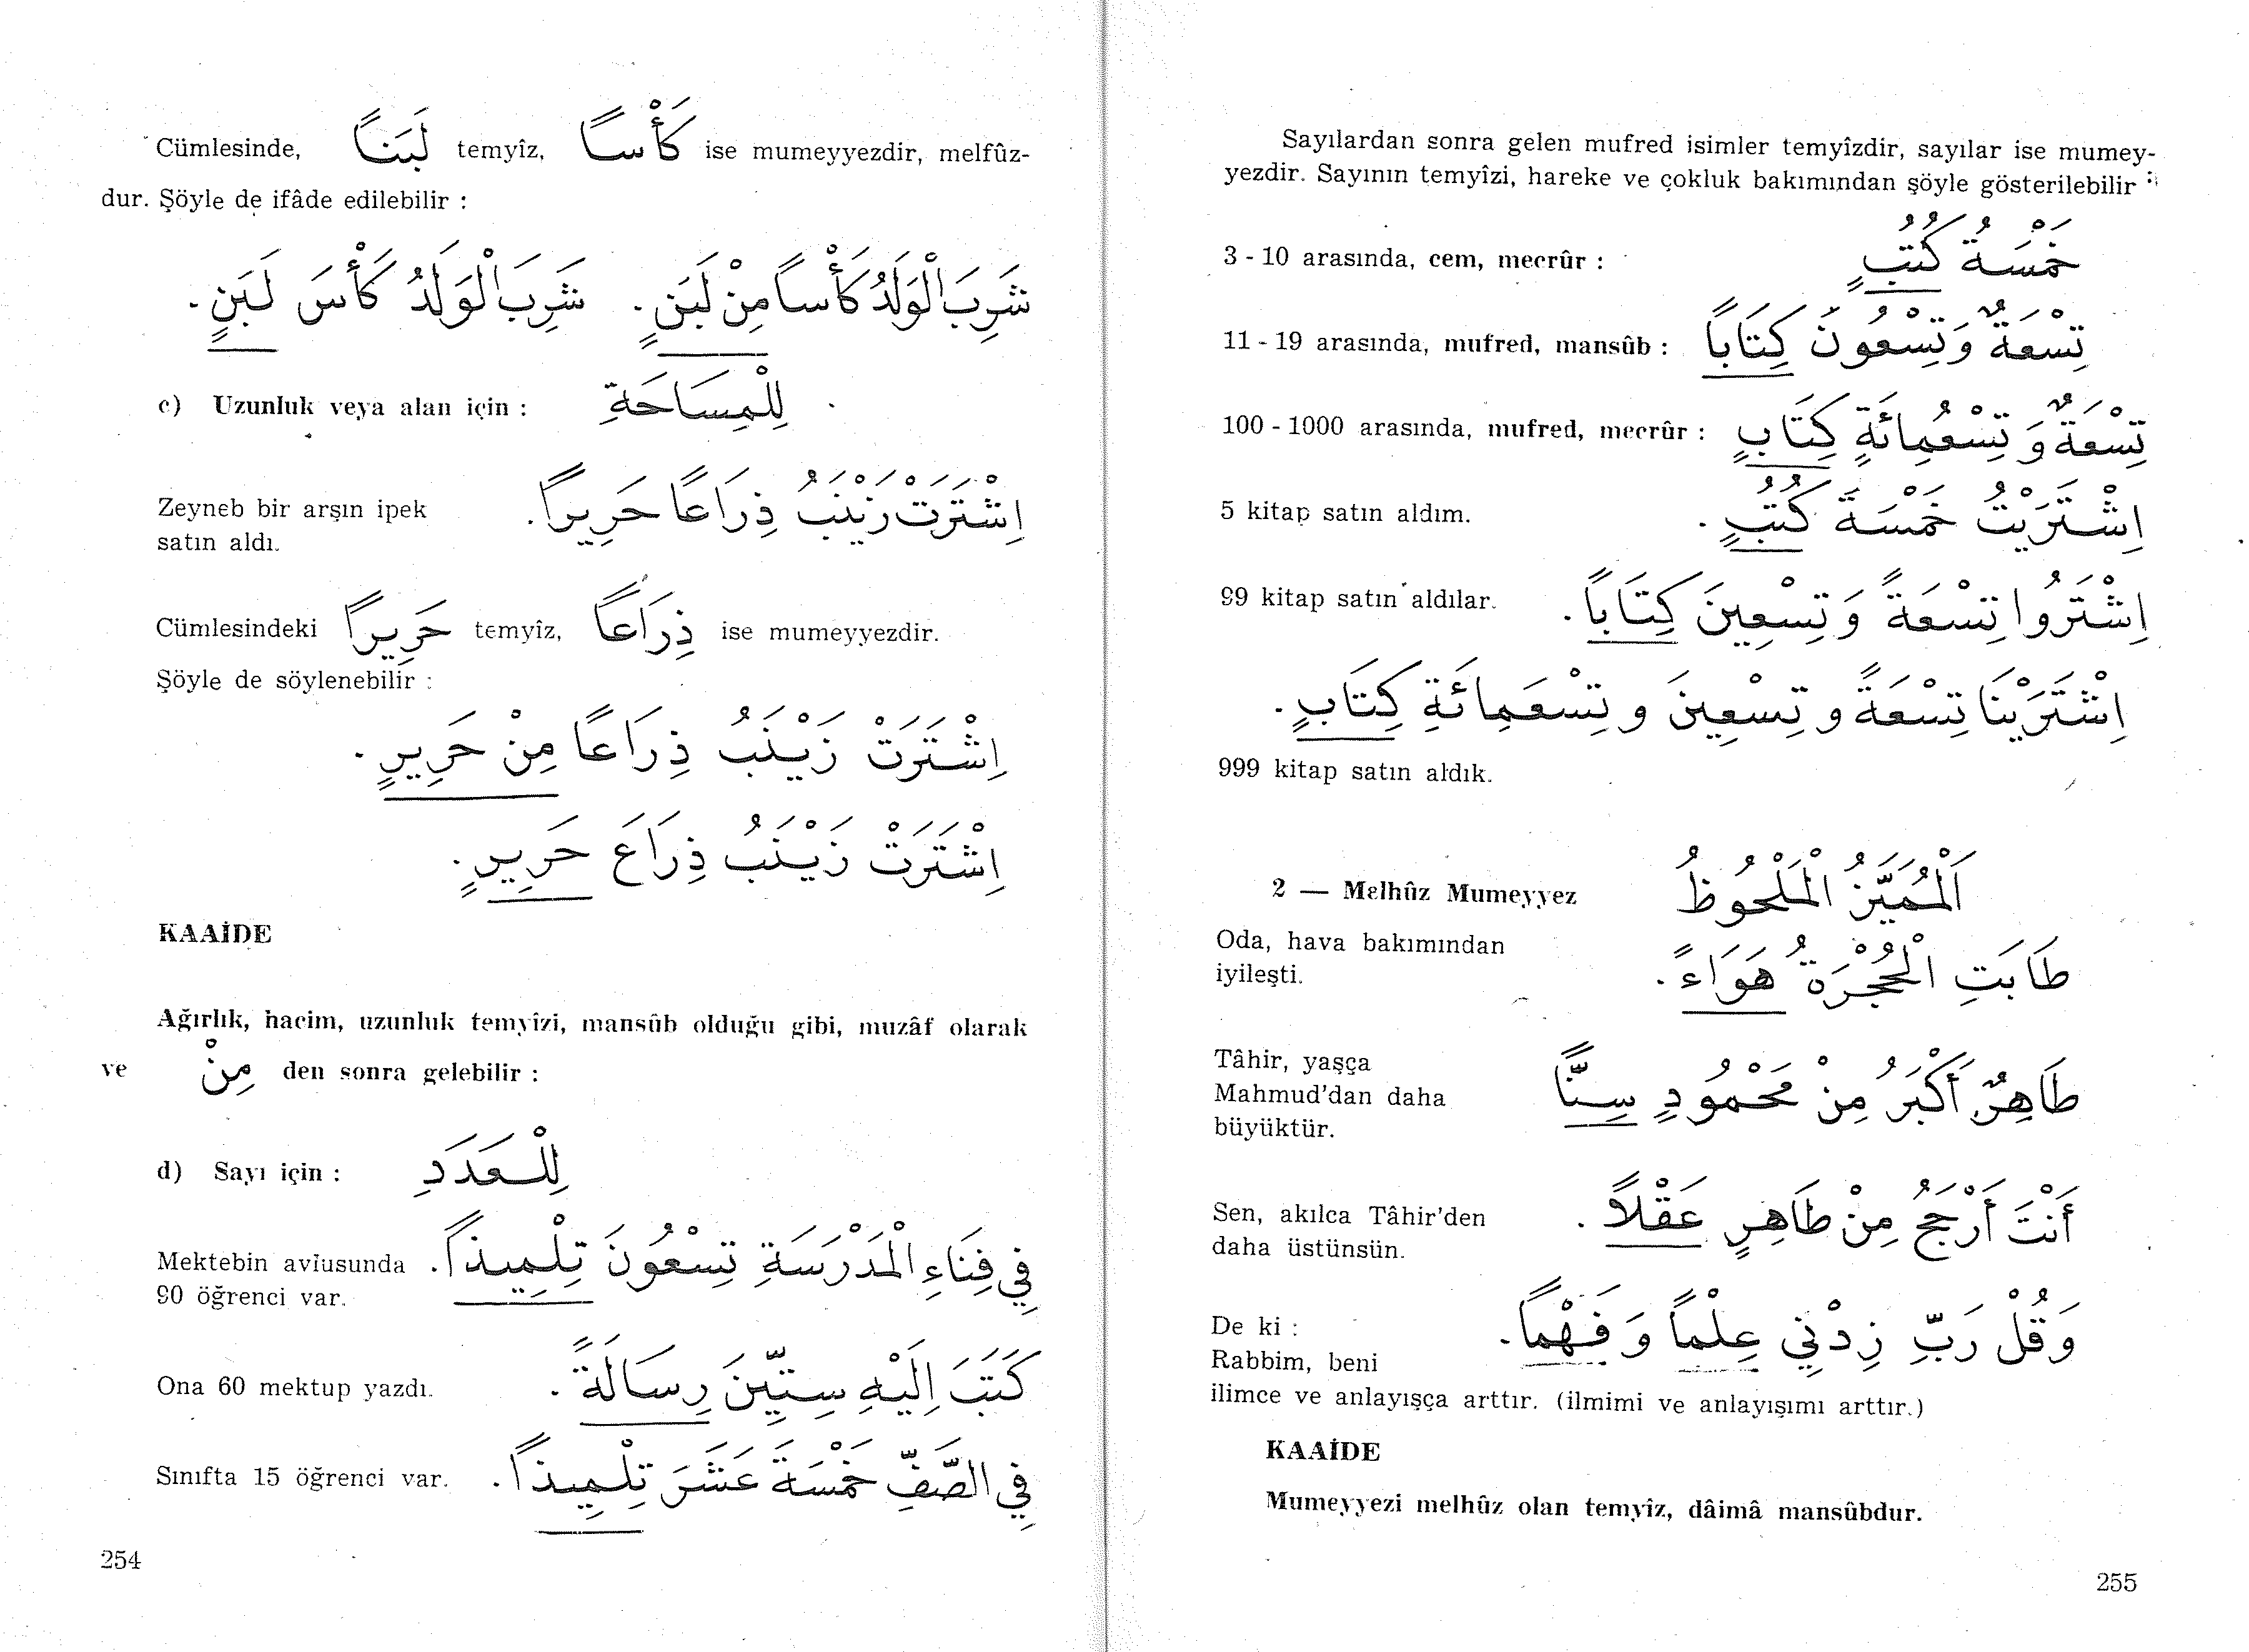 Cümlesinde, لَبَنًا temyîz, كَأْسًا ise mumeyyezdir, melfûz-
dur. Şöyle de ifâde edilebilir :
شَرِبَ الْوَلَدُ كَأْسًا مِنْ لَبَنٍ . شَرِبَ الْوَلَدُ كَأْسَ لَبَنٍ .
c) Uzunluk veya alan için : لِلْمِسَاحَةِ
Zeyneb bir arşın ipek
satın aldı.
اِشْتَرَتْ زَيْنَبُ ذِرَاعًا حَرِيرًا .
Cümlesindeki حَرِيرًا temyîz, ذِرَاعًا ise mumeyyezdir.
Şöyle de söylenebilir :
اِشْتَرَتْ زَيْنَبُ ذِرَاعًا مِنْ حَرِيرٍ .
اِشْتَرَتْ زَيْنَبُ ذِرَاعَ حَرِيرٍ .
KAAİDE
Ağırlık, hacim, uzunluk temyîzi, mansûb olduğu gibi, muzâf olarak
ve مِنْ den sonra gelebilir :
d) Sayı için : لِلْعَدَدِ
Mektebin avlusunda
90 öğrenci var.
فِي فِنَاءِ الْمَدْرَسَةِ تِسْعُونَ تِلْمِيذاً .
Ona 60 mektup yazdı. كَتَبَ اِلَيْهِ سِتِّينَ رِسَالَةً .
Sınıfta 15 öğrenci var. فِي الصَّفِّ خَمْسَةَ عَشَرَ تِلْمِيذاً .
254
Sayılardan sonra gelen mufred isimler temyîzdir, sayılar ise mumey-
yezdir. Sayının temyîzi, hareke ve çokluk bakımından şöyle gösterilebilir :
3 - 10 arasında, cem, mecrûr : خَمْسَةُ كُتُبٍ
11 - 19 arasında, mufred, mansûb : تِسْعَةٌ وَتِسْعُونَ كِتَابًا
100 - 1000 arasında, mufred, mecrûr : تِسْعَةٌ وَ تِسْعُمِائَةِ كِتَابٍ
5 kitap satın aldım. اِشْتَرَيْتُ خَمْسَةَ كُتُبٍ .
99 kitap satın aldılar. اِشْتَرُوا تِسْعَةً وَ تِسْعِينَ كِتَابًا .
اِشْتَرَيْنَا تِسْعَةً و تِسْعِينَ و تِسْعَمِائَةِ كِتَابٍ .
999 kitap satın aldık.
2 — Melhûz Mumeyyez اَلْمُمَيَّزُ الْمَلْحُوظُ
Oda, hava bakımından
iyileşti.
طَابَتِ الْحُجْرَةُ هَوَاءً .
Tâhir, yaşça
Mahmud'dan daha
büyüktür.
طَاهِرٌ أَكْبَرُ مِنْ مَحْمُودٍ سِنًّا
Sen, akılca Tâhir'den
daha üstünsün.
أَنْتَ أَرْجَحُ مِنْ طَاهِرٍ عَقْلاً .
De ki :
Rabbim, beni
وَقُلْ رَبِّ زِدْنِي عِلْمًا وَ فَهْمًا .
ilimce ve anlayışça arttır. (ilmimi ve anlayışımı arttır.)
KAAİDE
Mumeyyezi melhûz olan temyîz, dâimâ mansûbdur.
255